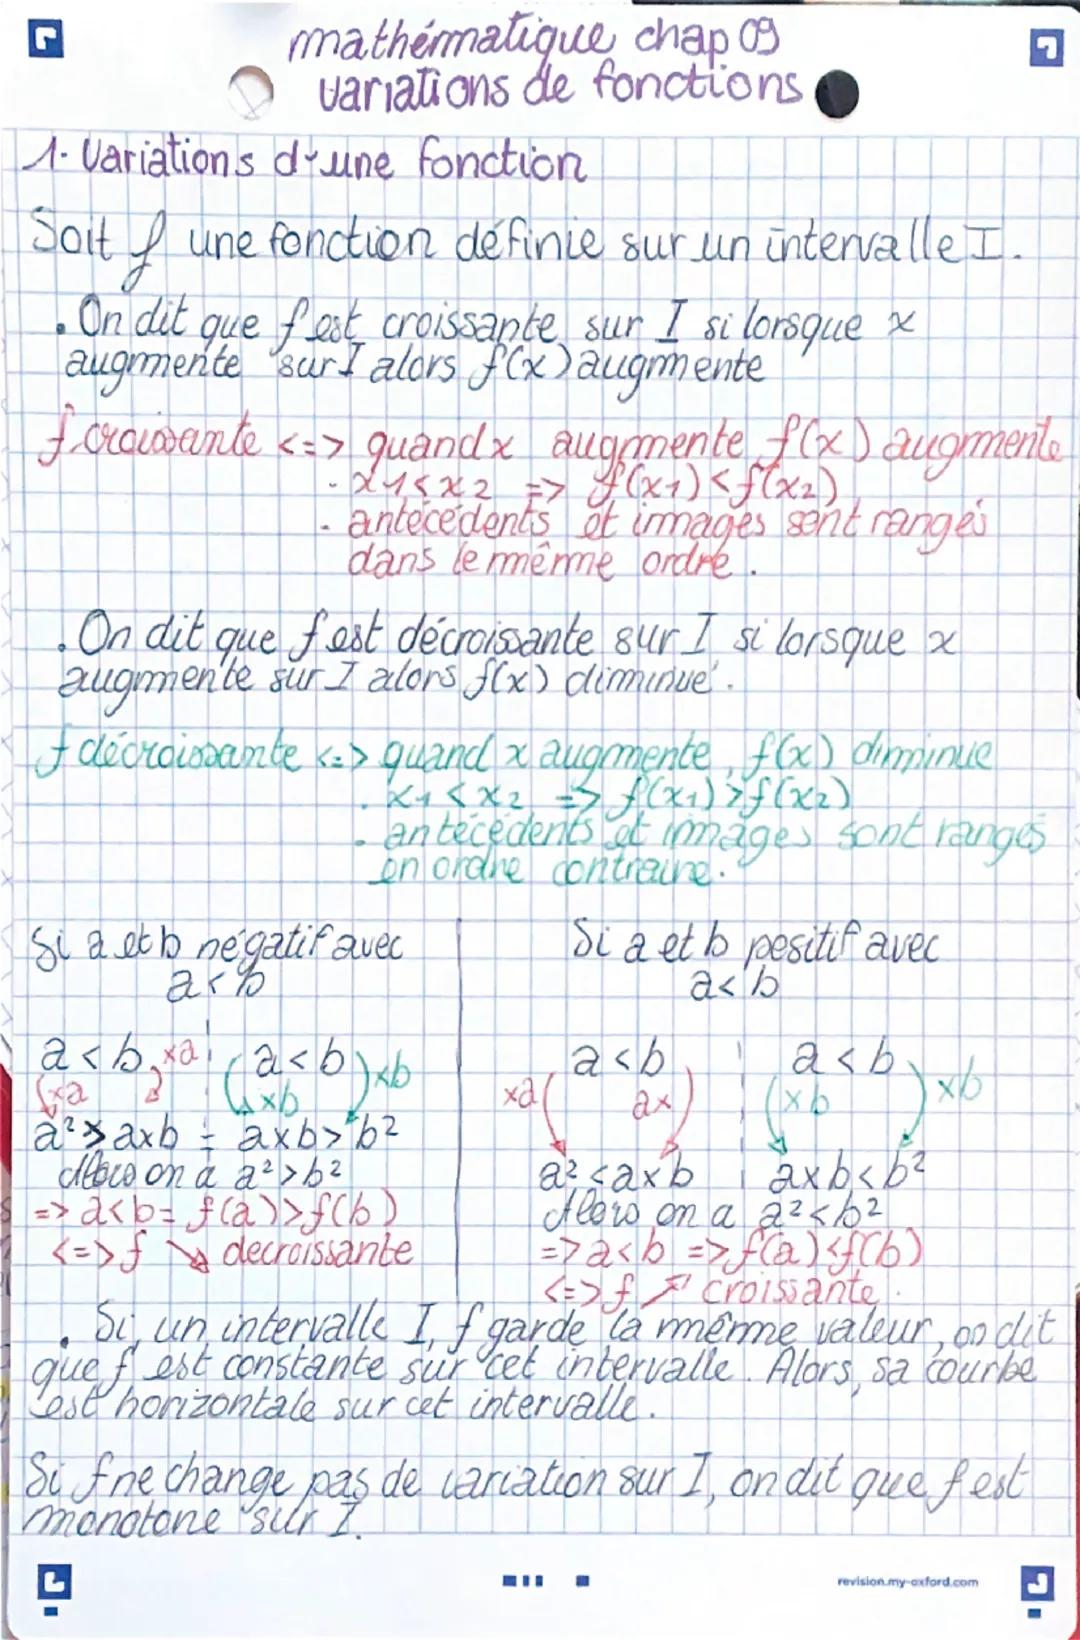 mathématique chap 09
variations de fonctions
1. Variations d'une fonction
Soit f une fonction définie sur un intervalle I.
. On dit que f est croissante sur I si lorsque x
augmente sur I alors f(x) augmente
f croissante <=> quand x augmente f(x) augmente
- x1 < x2 => f(x1) < f(x2)
- antécédents et images sont rangés
dans le même ordre.
. On dit que f est décroissante sur I si lorsque x
augmente sur I alors f(x) diminue.
f décroissante <=> quand x augmente, f(x) diminue
. x1 < x2 => f(x1) > f(x2)
- antécédents et images sont rangés
en ordre contraire.
Si a et b négatif avec
a < b
a < b xa a < b xb
xa xb
a² > axb axb > b²
Alors on a a² > b²
=> a < b = f(a) > f(b)
<=> f ↘ decroissante
Si a et b positif avec
a < b
a < b a < b
xa ax xb xb
a² < axb axb < b²
Alors on a a² < b²
=> a < b => f(a) < f(b)
<=> f ↗ croissante.
. Si, un intervalle I, f garde la même valeur, on dit
que f est constante sur cet intervalle. Alors, sa courbe
est horizontale sur cet intervalle.
Si f ne change pas de variation sur I, on dit que f est
monotone sur I.
revision.my-oxford.com